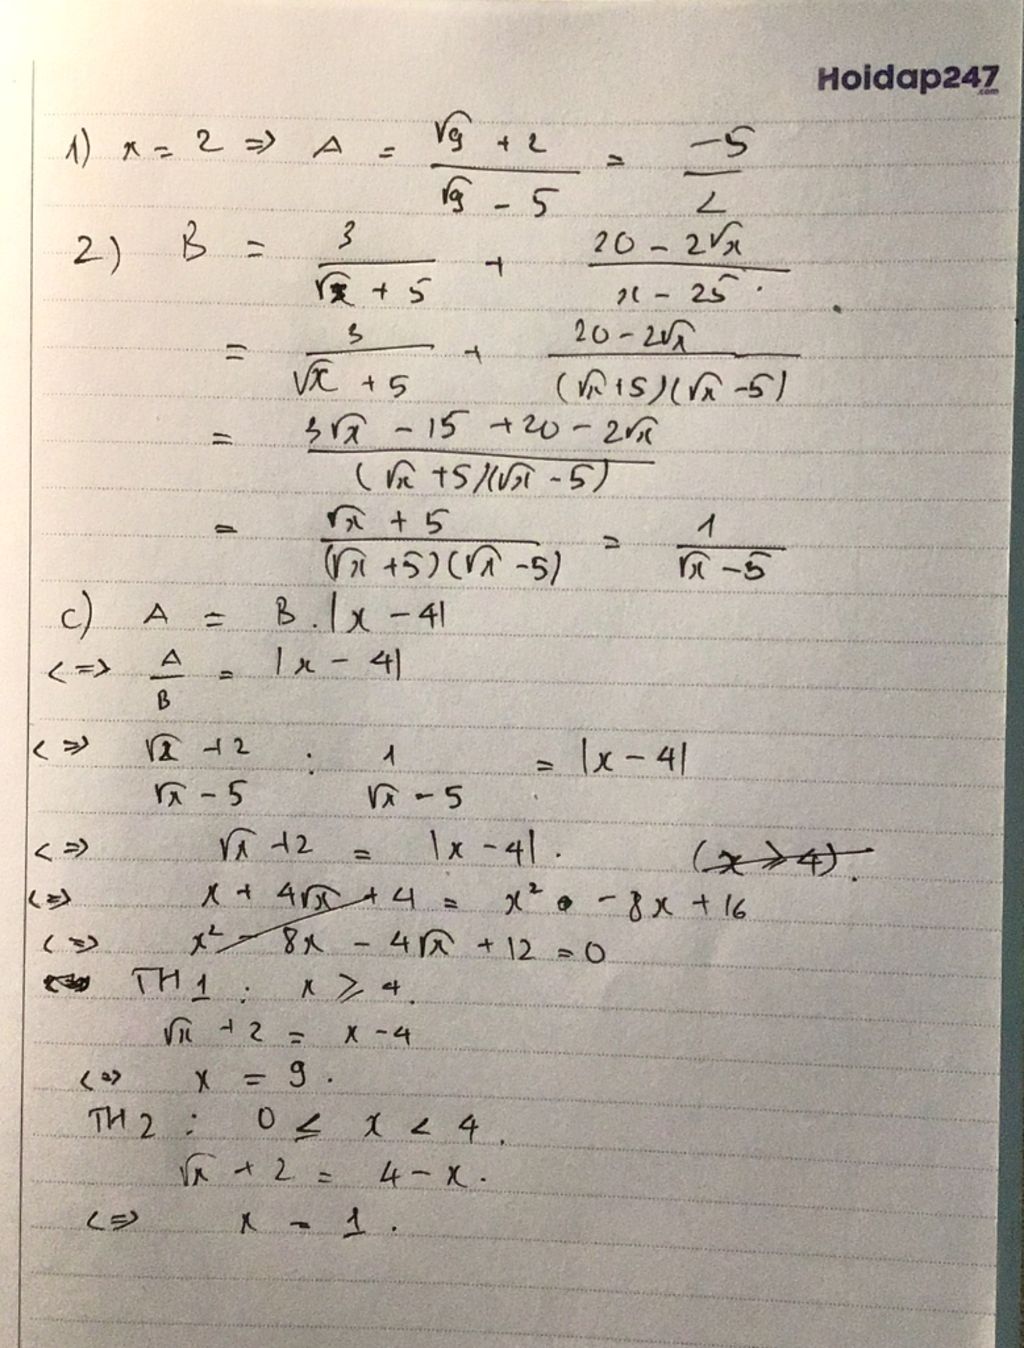 Hoidap247
.com
1) x = 2 => A = (√9 + 2)/(√9 - 5) = -5/2
2) B = 3/(√x + 5) + (20 - 2√x)/(x - 25)
= 3/(√x + 5) + (20 - 2√x)/((√x + 5)(√x - 5))
= (3√x - 15 + 20 - 2√x)/((√x + 5)(√x - 5))
= (√x + 5)/((√x + 5)(√x - 5)) = 1/(√x - 5)
c) A = B . |x - 4|
<=> A/B = |x - 4|
<=> (√x + 2)/(√x - 5) : 1/(√x - 5) = |x - 4|
<=> √x + 2 = |x - 4| . (x ≥ 4).
<=> x + 4√x + 4 = x² - 8x + 16
<=> x² - 8x - 4√x + 12 = 0
TH1 : x ≥ 4.
√x + 2 = x - 4
<=> x = 9 .
TH2 : 0 ≤ x < 4 .
√x + 2 = 4 - x .
<=> x = 1 .